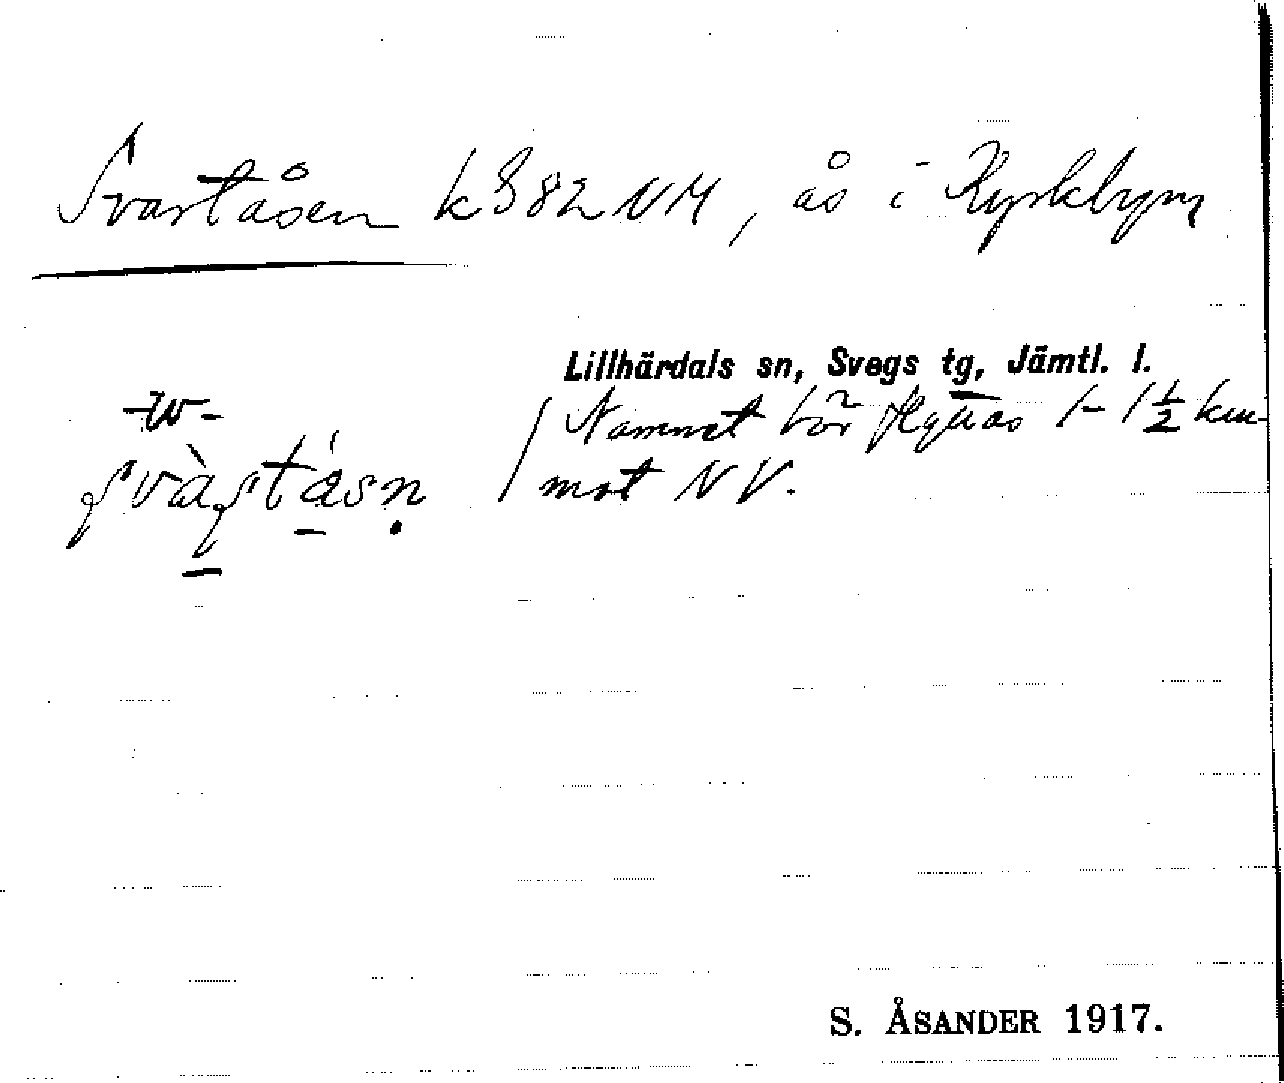 Svartåsen k 382 NM, ås i Kyrkbyn
Lillhärdals sn, Svegs tg, Jämtl. l.
-w-
svàʃtásṇ
/ Namnet bör flyttas 1-1½ km
mot NV.
S. ÅSANDER 1917.